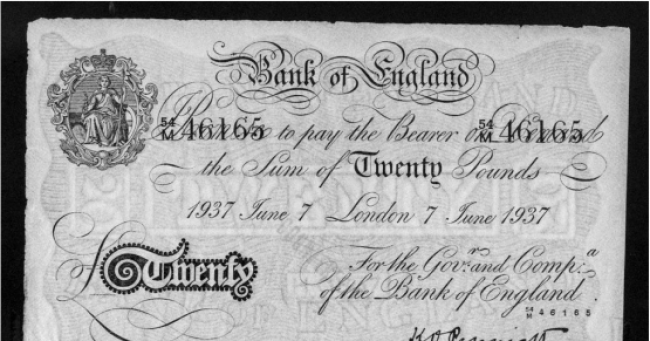 Bank of England
54/M 46165 to pay the Bearer on Demand 54/M 46165
the Sum of Twenty Pounds
1937 June 7 London 7 June 1937
£Twenty
For the Govr. and Compa.
of the Bank of England.
54/M 46165